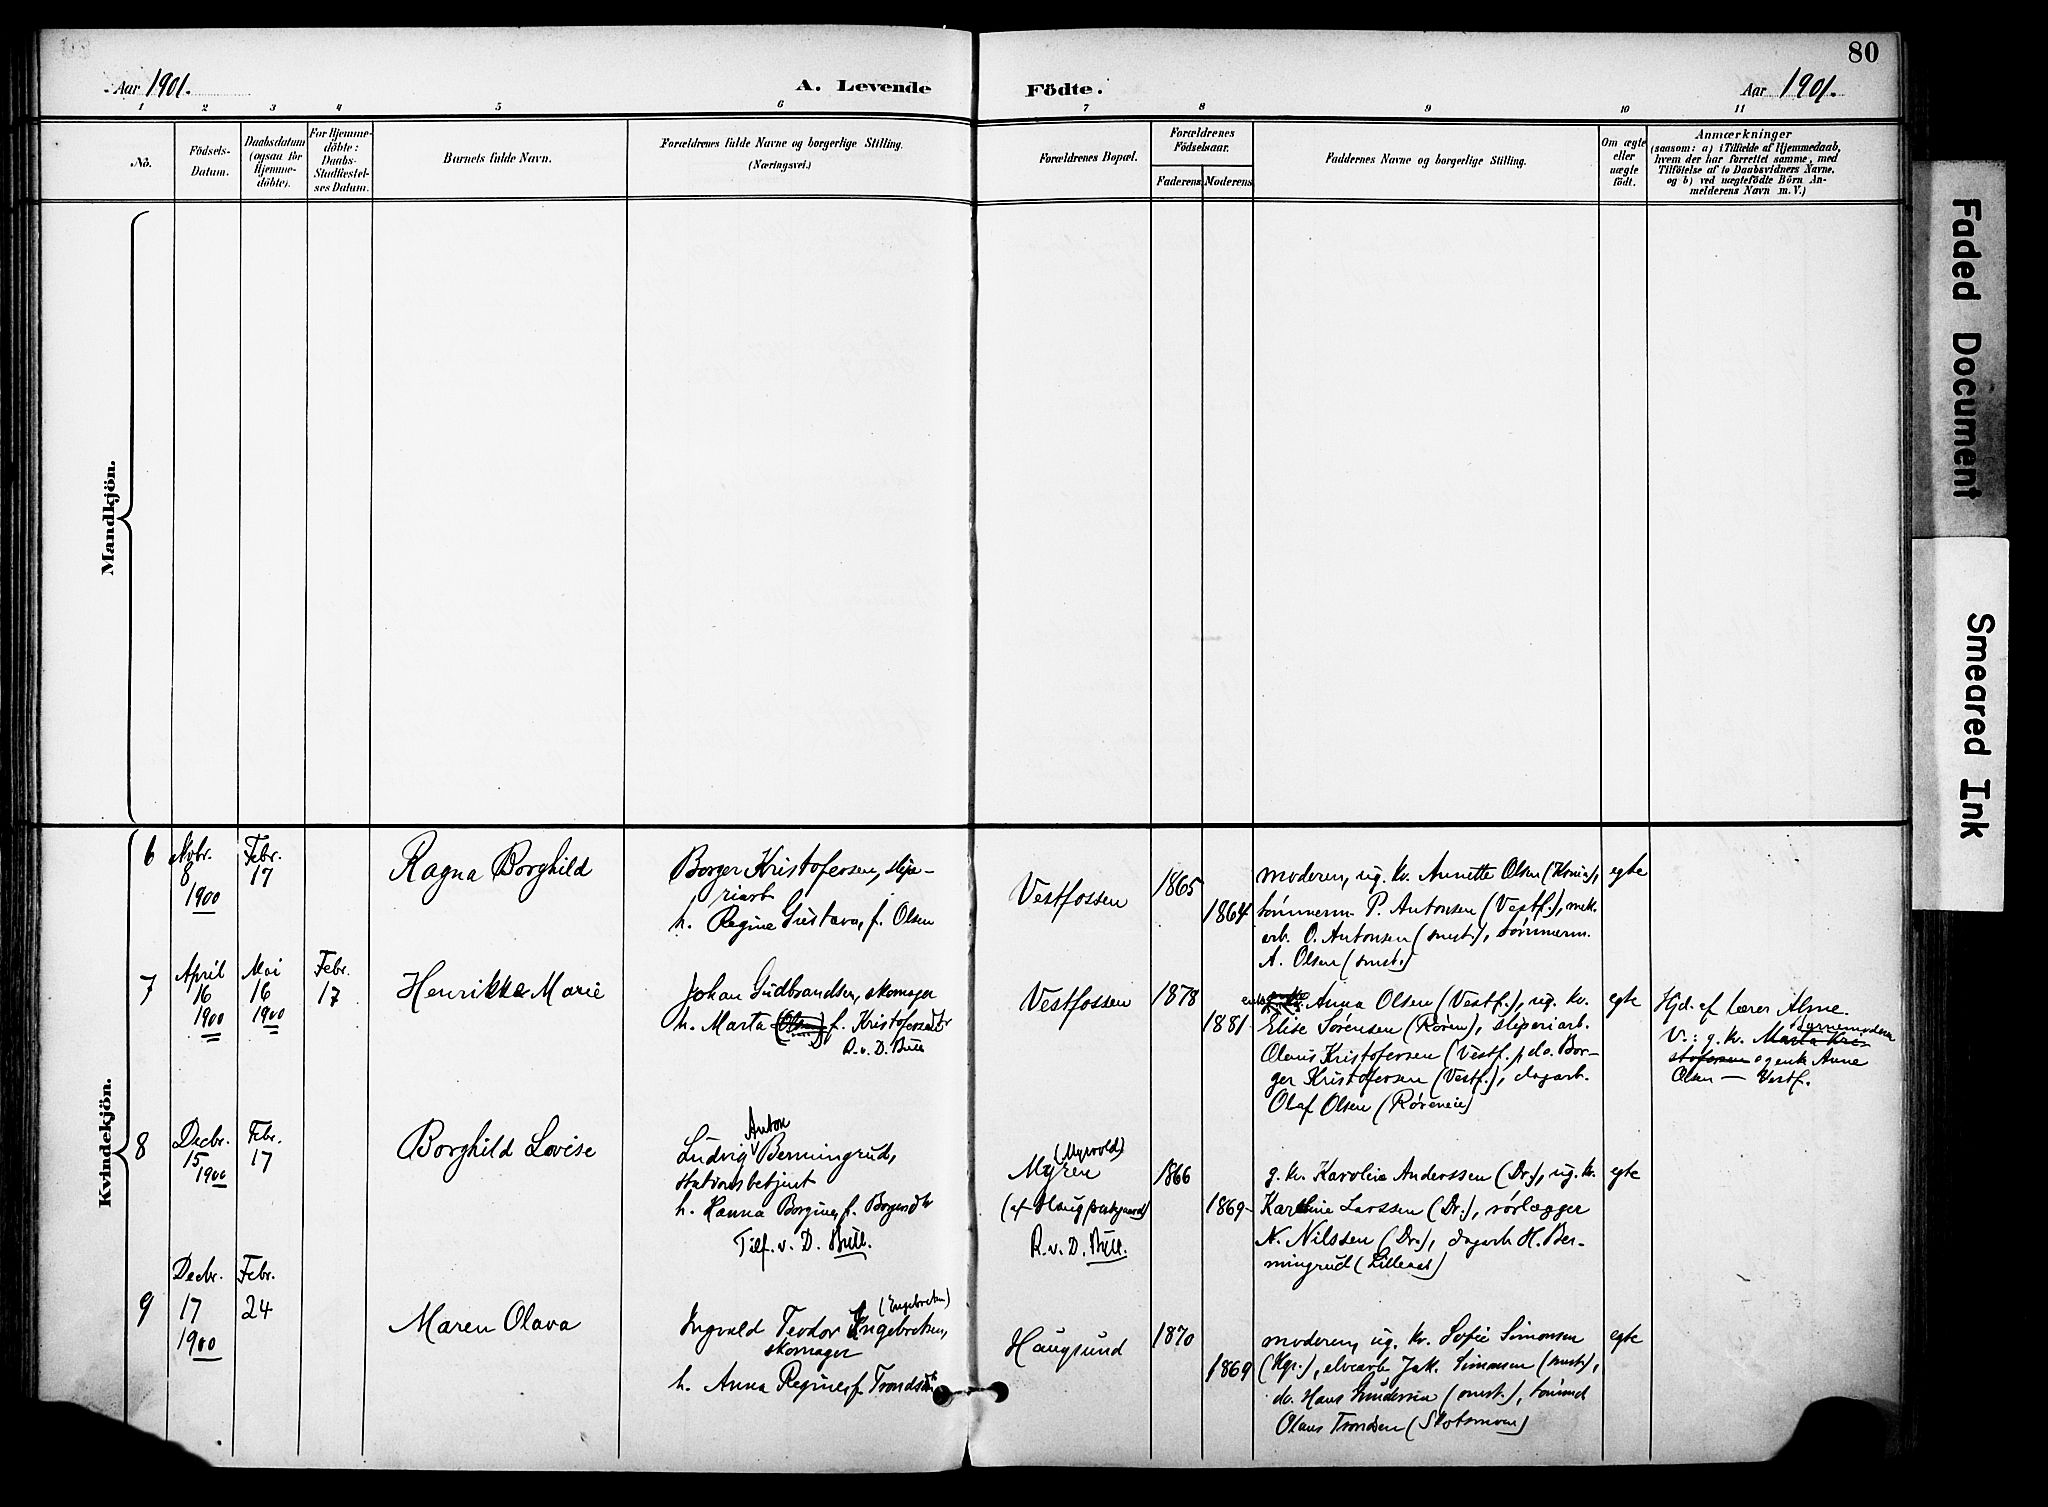 80
Aar 1901.
A. Levende Födte.
Aar 1901.
1 2 3 4 5 6 7 8 9 10 11
No.
Födsels-
Datum.
Daabsdatum
(ogsaa for
Hjemme-
döbte).
For Hjemme-
döbte:
Daabs-
Stadfæstel-
ses Datum.
Barnets fulde Navn.
Forældrenes fulde Navne og borgerlige Stilling.
(Næringsvei.)
Forældrenes Bopæl.
Forældrenes
Födselsaar.
Faderens
Moderens
Faddernes Navne og borgerlige Stilling.
Om ægte
eller
uægte
födt.
Anmærkninger
(saasom: a) i Tilfælde af Hjemmedaab,
hvem der har forrettet samme, med
Tilföielse af to Daabsvidners Navne,
og b) ved uægtefödte Börn An-
melderens Navn m. V.)
Mandkjön.
Kvindekjön.
6
Novbr.
8
1900
Febr.
17
Ragna Borghild
Borger Kristofersen, slipe-
riarb
h. Regine Gustava, f. Olsen
Vestfossen
1865
1864
moderen, ug. kv. Annette Olsen
tømmerm. P. Antonsen (Vestf.), mek.
arb. O. Antonsen (smst.), tømmerm.
A. Olsen (smst.)
egte
7
April
16
1900
Mai
16
1900
Febr.
17
Henrikke Marie
Johan Gudbrandsen, skomager
h. Marta (Olsen) f. Kristofersdtr
R. v. D. Bull
Vestfossen
1878
1881
enke Anna Olsen (Vestf.), ug. kv.
Elise Sørensen (Røren), sliperiarb.
Olaus Kristofersen (Vestf.), do. Bor-
ger Kristofersen (Vestf.), dagarb.
Olaf Olsen (Røreneie)
egte
Hjd. af lærer Alme.
Barnemoderen
V.: g. kv. Marta Kri-
stofersen og enke Anne
Olsen — Vestf.
8
Decbr.
15
1900
Febr.
17
Borghild Lovise
Anton
Ludvig Bermingrud,
stationsbetjent
h. Hanna Borgine, f. Borgersdtr
Tilf. v. D. Bull.
(Myrvold)
Myren
R. v. D. Bull.
1866
1869
g. kv. Karoline Anderssen (Dr.), ug. kv.
Karoline Larssen (Dr.), rørlægger
N. Nilssen (Dr.), dagarb. H. Ber-
mingrud
egte
9
Decbr.
17
1900
Febr.
24
Maren Olava
(Engebretsen)
Ingvald Teodor Ingebretsen,
skomager
h. Anna Regine f. Trondsdtr
Haugsund
1870
1869
moderen, ug. kv. Sofie Simonsen
elvearb Jak. Simonsen (smst.),
do. Hans Gundersen (smst.), tømmd
Olaus Trondsen (Skotsmoen)
egte
Faded Document
Smeared Ink